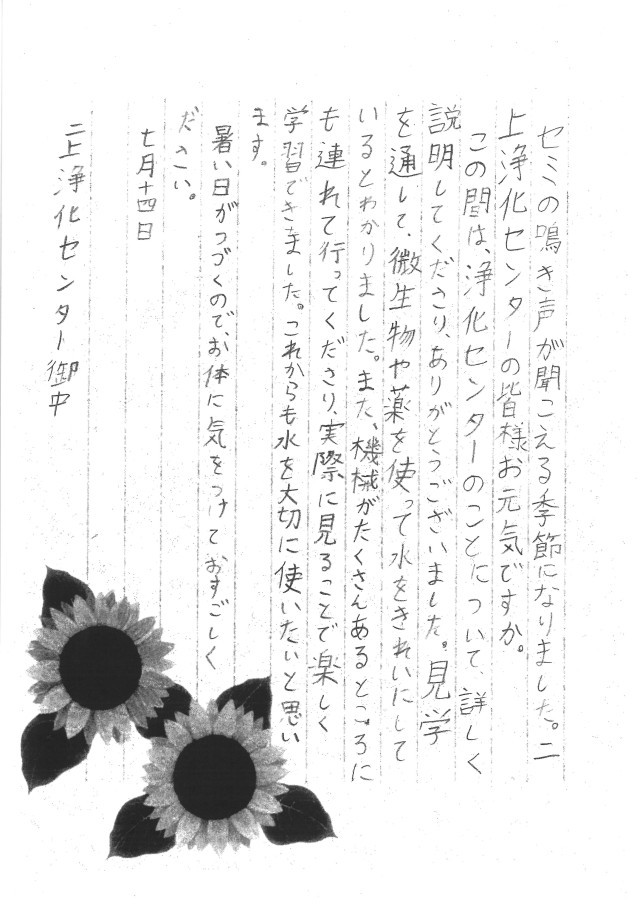 セミの鳴き声が聞こえる季節になりました。二
上浄化センターの皆様お元気ですか。
この間は、浄化センターのことについて、詳しく
説明してくださり、ありがとうございました。見学
を通して、微生物や薬を使って水をきれいにして
いるとわかりました。また、機械がたくさんあるところに
も連れて行ってくださり、実際に見ることで楽しく
学習できました。これからも水を大切に使いたいと思い
ます。
暑い日がつづくので、お体に気をつけておすごしく
ださい。
七月十四日
二上浄化センター御中